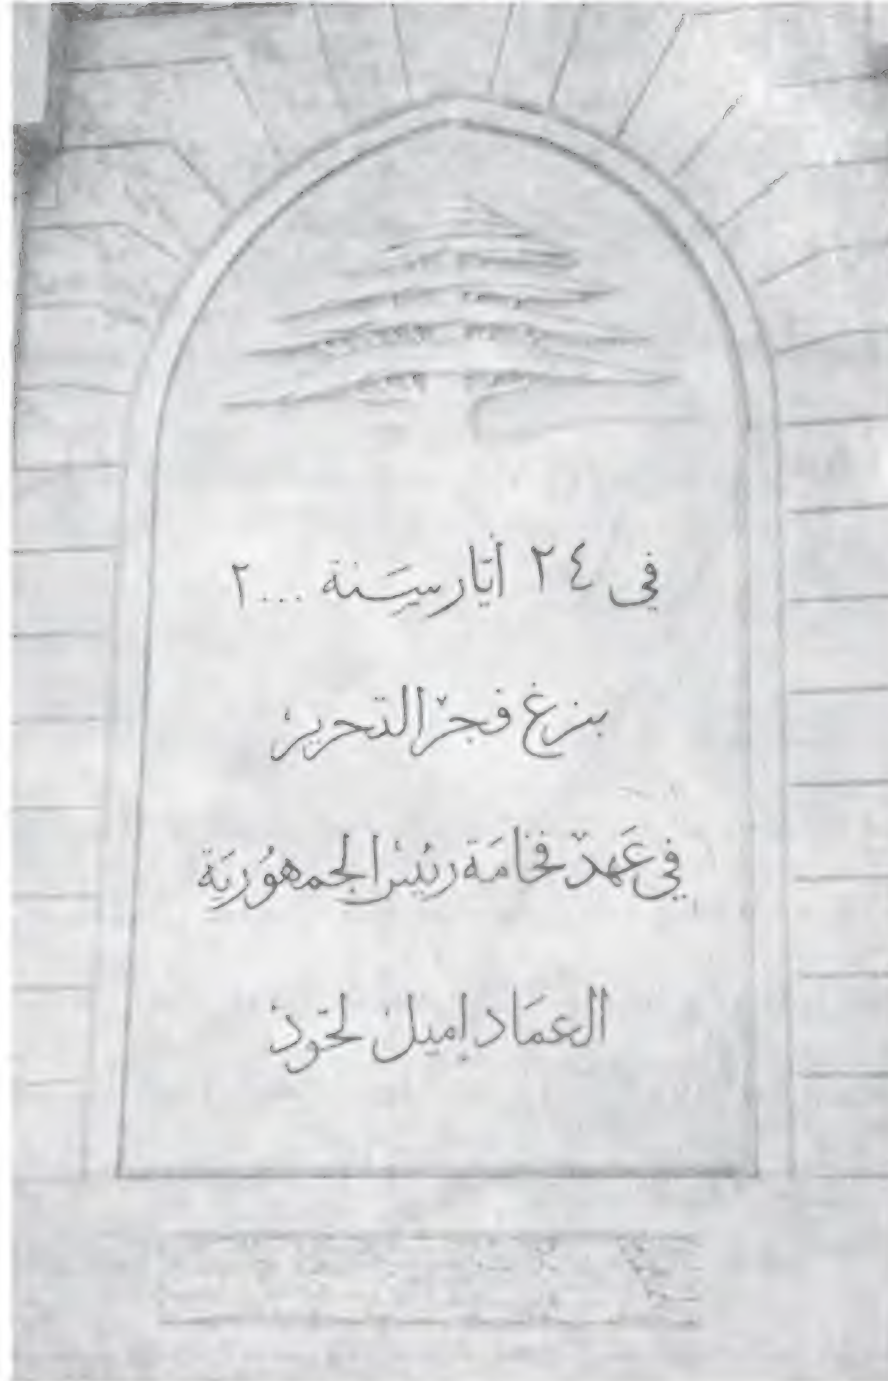 في ٢٤ أيّار سَنة ٢٠٠٠
بزغ فجر التحرير
في عَهد فخامَة رئيس الجمهوُريَة
العمَاد إميل لحّود